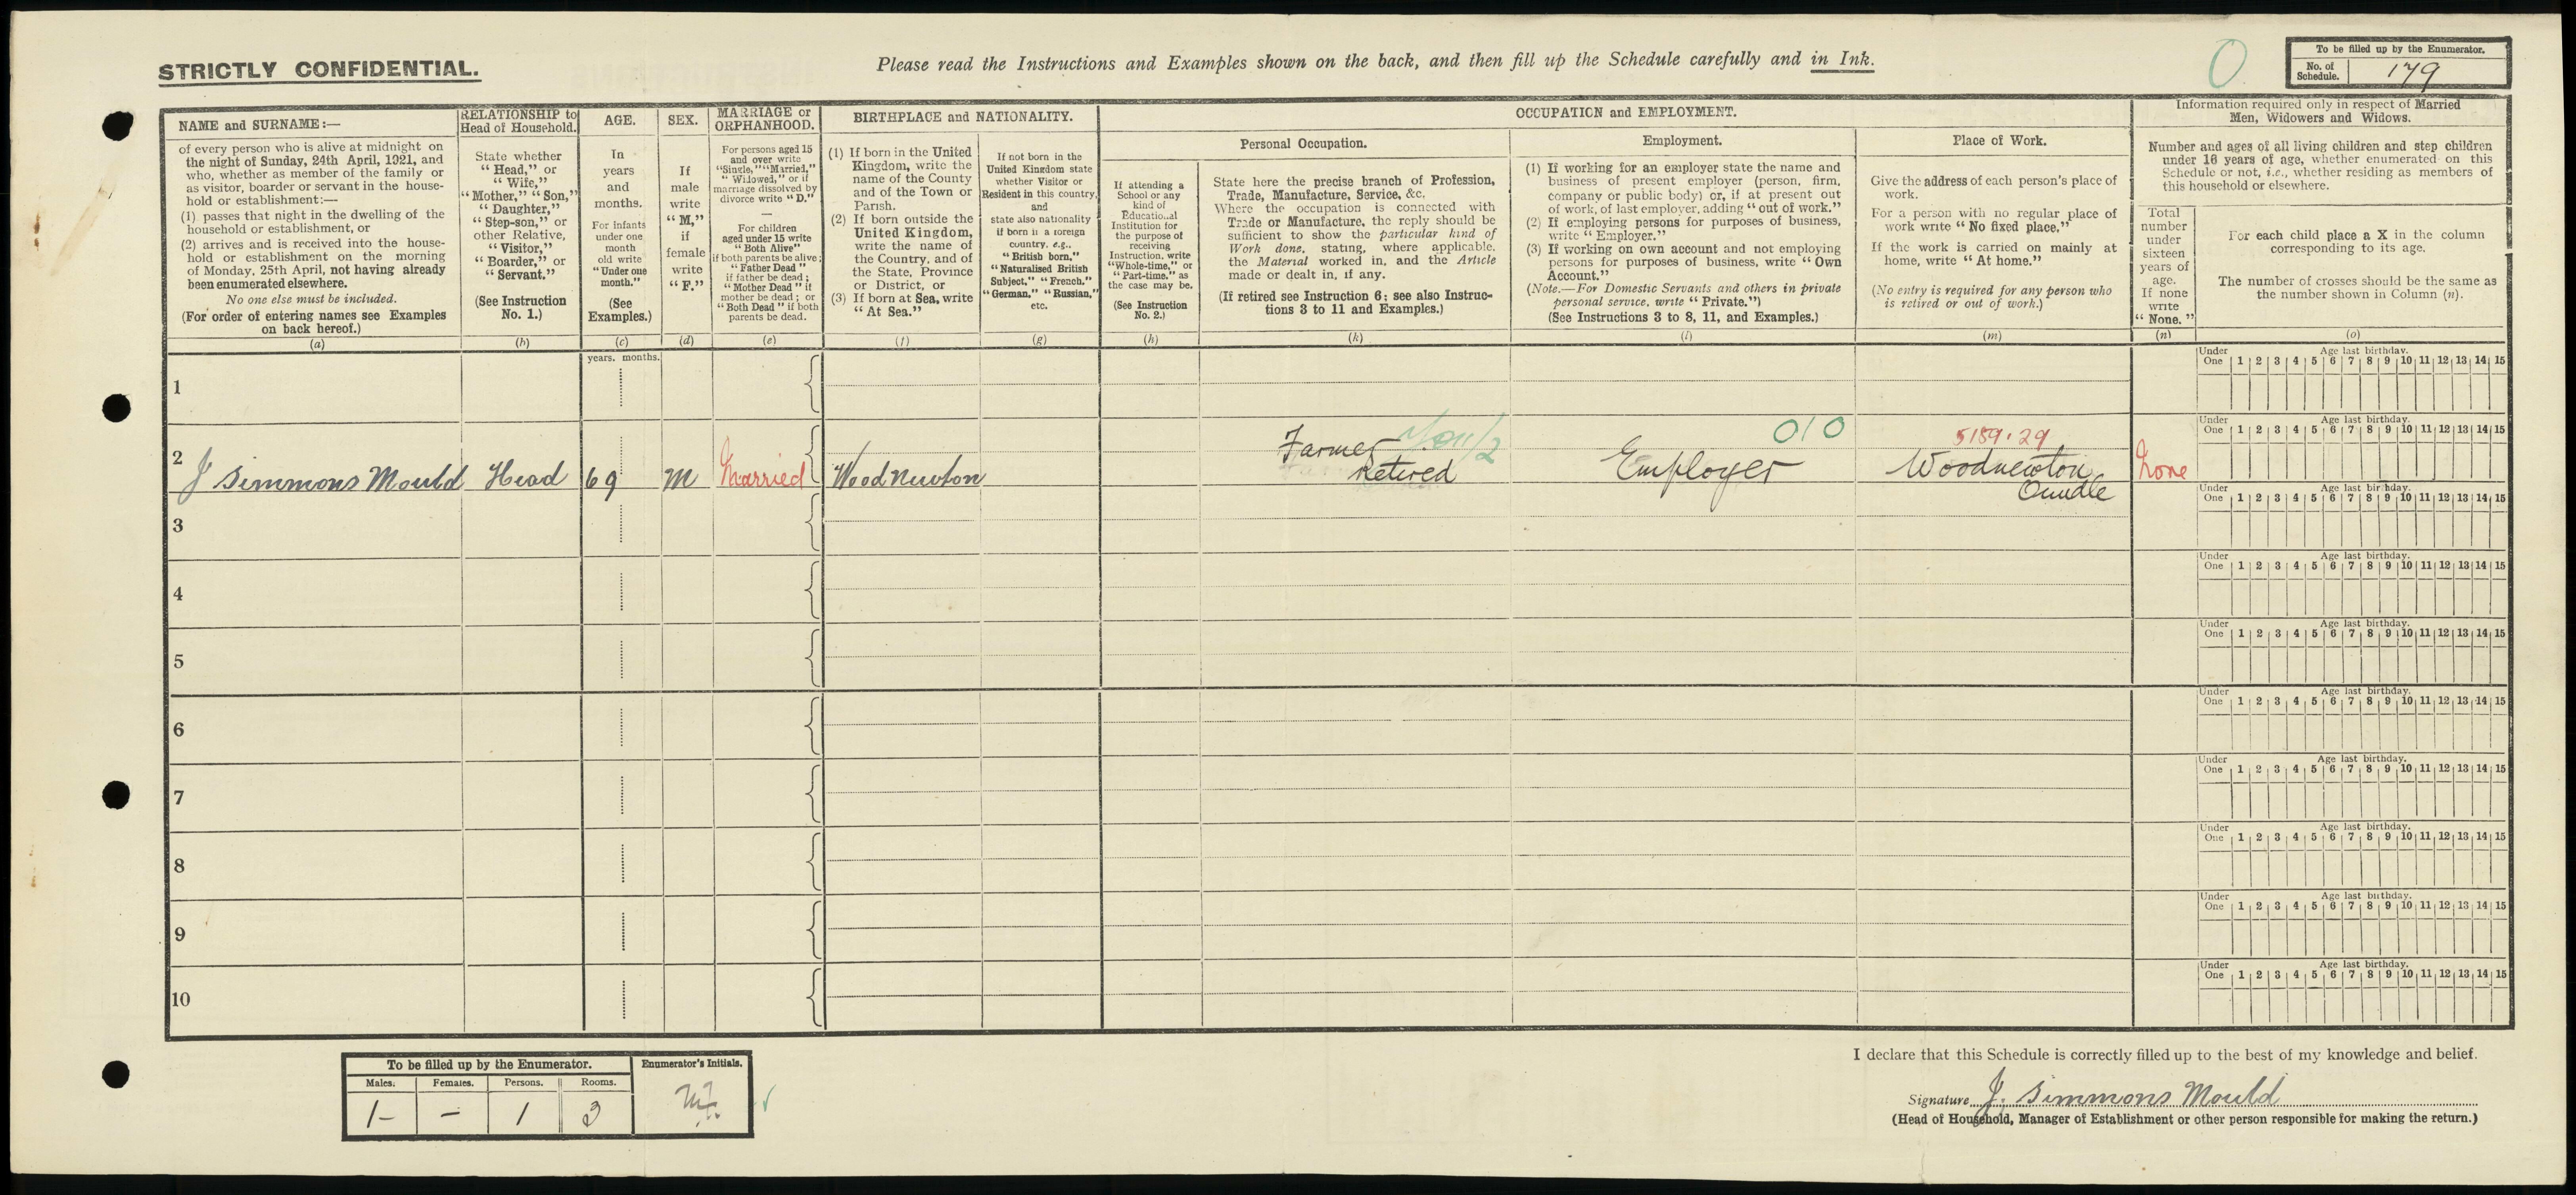 STRICTLY CONFIDENTIAL.
Please read the Instructions and Examples shown on the back, and then fill up the Schedule carefully and in Ink.
0
To be filled up by the Enumerator.
No. of Schedule. 179
NAME and SURNAME:—
of every person who is alive at midnight on
the night of Sunday, 24th April, 1921, and
who, whether as member of the family or
as visitor, boarder or servant in the house-
hold or establishment:—
(1) passes that night in the dwelling of the
household or establishment, or
(2) arrives and is received into the house-
hold or establishment on the morning
of Monday, 25th April, not having already
been enumerated elsewhere.
No one else must be included.
(For order of entering names see Examples
on back hereof.)
(a)
RELATIONSHIP to
Head of Household.
State whether
"Head," or
"Wife,"
"Mother," "Son,"
"Daughter,"
"Step-son," or
other Relative,
"Visitor,"
"Boarder," or
"Servant."
(See Instruction
No. 1.)
(b)
AGE.
In
years
and
months.
For infants
under one
month
old write
"Under one
month."
(See
Examples.)
(c)
SEX.
If
male
write
"M,"
if
female
write
"F."
(d)
MARRIAGE or
ORPHANHOOD.
For persons aged 15
and over write
"Single," "Married,"
"Widowed," or if
marriage dissolved by
divorce write "D."
—
For children
aged under 15 write
"Both Alive"
if both parents be alive;
"Father Dead"
if father be dead;
"Mother Dead" if
mother be dead; or
"Both Dead" if both
parents be dead.
(e)
BIRTHPLACE and NATIONALITY.
(1) If born in the United
Kingdom, write the
name of the County
and of the Town or
Parish.
(2) If born outside the
United Kingdom,
write the name of
the Country, and of
the State, Province
or District, or
(3) If born at Sea, write
"At Sea."
(f)
If not born in the
United Kingdom state
whether Visitor or
Resident in this country,
and
state also nationality
if born in a foreign
country, e.g.,
"British born,"
"Naturalised British
Subject," "French,"
"German," "Russian,"
etc.
(g)
OCCUPATION and EMPLOYMENT.
If attending a
School or any
kind of
Educational
Institution for
the purpose of
receiving
Instruction, write
"Whole-time," or
"Part-time," as
the case may be.
(See Instruction
No. 2.)
(h)
Personal Occupation.
State here the precise branch of Profession,
Trade, Manufacture, Service, &c.
Where the occupation is connected with
Trade or Manufacture, the reply should be
sufficient to show the particular kind of
Work done, stating, where applicable,
the Material worked in, and the Article
made or dealt in, if any.
(If retired see Instruction 6; see also Instruc-
tions 3 to 11 and Examples.)
(k)
Employment.
(1) If working for an employer state the name and
business of present employer (person, firm,
company or public body) or, if at present out
of work, of last employer, adding "out of work."
(2) If employing persons for purposes of business,
write "Employer."
(3) If working on own account and not employing
persons for purposes of business, write "Own
Account."
(Note.—For Domestic Servants and others in private
personal service, write "Private.")
(See Instructions 3 to 8, 11, and Examples.)
(l)
Place of Work.
Give the address of each person's place of
work.
For a person with no regular place of
work write "No fixed place."
If the work is carried on mainly at
home, write "At home."
(No entry is required for any person who
is retired or out of work.)
(m)
Information required only in respect of Married
Men, Widowers and Widows.
Number and ages of all living children and step children
under 16 years of age, whether enumerated on this
Schedule or not, i.e., whether residing as members of
this household or elsewhere.
Total
number
under
sixteen
years of
age.
If none
write
"None."
(n)
For each child place a X in the column
corresponding to its age.
The number of crosses should be the same as
the number shown in Column (n).
(o)
years. months.
1
Under One Age last birthday. 1 2 3 4 5 6 7 8 9 10 11 12 13 14 15
2
J Simmons Mould Head 69 M Married Woodnewton
Farmer
Retired
010
Employer
5189.29
Woodnewton
Oundle
None
Under One Age last birthday. 1 2 3 4 5 6 7 8 9 10 11 12 13 14 15
3
Under One Age last birthday. 1 2 3 4 5 6 7 8 9 10 11 12 13 14 15
4
Under One Age last birthday. 1 2 3 4 5 6 7 8 9 10 11 12 13 14 15
5
Under One Age last birthday. 1 2 3 4 5 6 7 8 9 10 11 12 13 14 15
6
Under One Age last birthday. 1 2 3 4 5 6 7 8 9 10 11 12 13 14 15
7
Under One Age last birthday. 1 2 3 4 5 6 7 8 9 10 11 12 13 14 15
8
Under One Age last birthday. 1 2 3 4 5 6 7 8 9 10 11 12 13 14 15
9
Under One Age last birthday. 1 2 3 4 5 6 7 8 9 10 11 12 13 14 15
10
Under One Age last birthday. 1 2 3 4 5 6 7 8 9 10 11 12 13 14 15
To be filled up by the Enumerator.
Males. Females. Persons. Rooms.
1- - 1 3
Enumerator's Initials.
I declare that this Schedule is correctly filled up to the best of my knowledge and belief.
Signature J. Simmons Mould
(Head of Household, Manager of Establishment or other person responsible for making the return.)